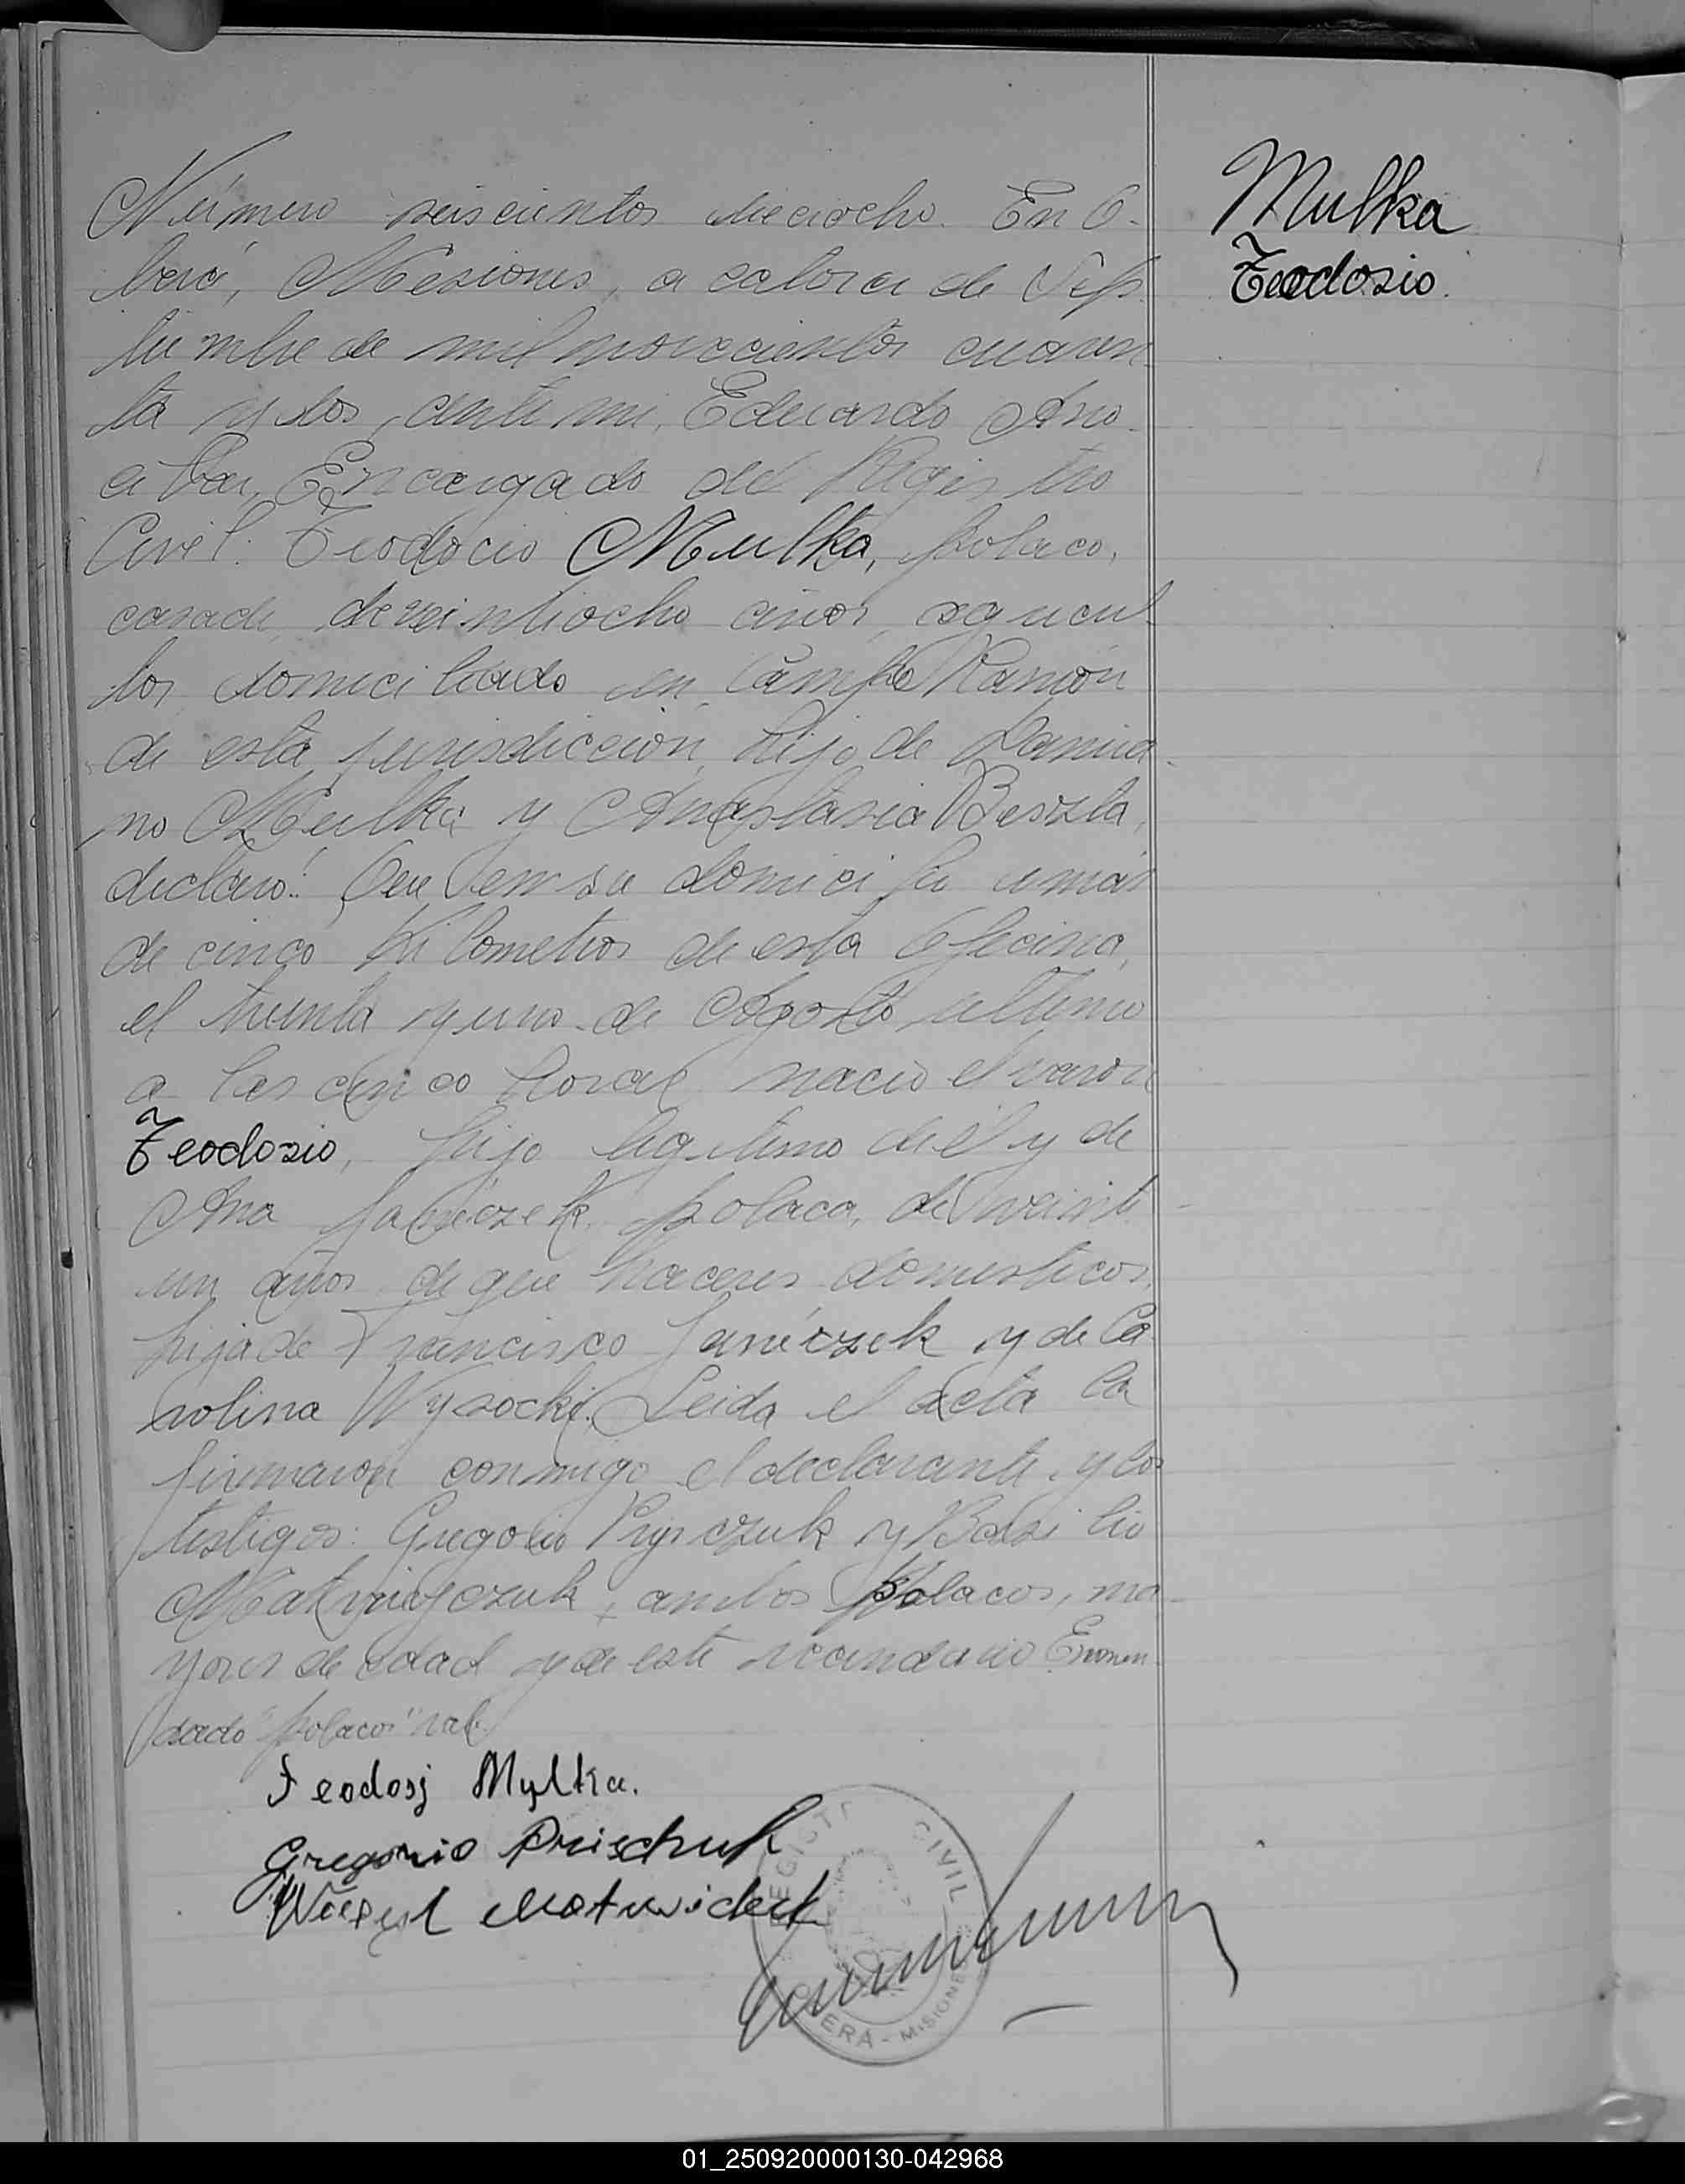 Número seiscientos dieciocho. En O-
berá, Misiones, a catorce de Sep
tiembre de mil novecientos cuaren
ta y dos, ante mi, Eduardo
Encargado del Registro
Civil: Teodocio Mulka, polaco,
casado, de veintiocho años, agricul
tor domiciliado en Campo Ramón
de esta jurisdicción, hijo de Damia
no Mulka y Anastasia
declaró: Que en su domicilio a más
de cinco Kilometros de esta Oficina,
el treinta y uno de Agosto ultimo
a las cinco horas nació el varon
Teodosio, hijo legitimo de él y de
Ana Janieczek, polaca, de veinti
un años, de que haceres domesticos,
hija de Francisco Janieczek y de Ca
rolina Wysocki. Leida el acta la
firmaron conmigo el declarante y los
testigos: Gregorio y Basilio
ambos polacos, ma-
yores de edad y de este vecindario Enmen
dado "polacos" vale
Teodosj Mylka.
Gregorio Prischuk
Mulka
Teodosio.
REGISTRO CIVIL
OBERÁ - MISIONES
01_250920000130-042968